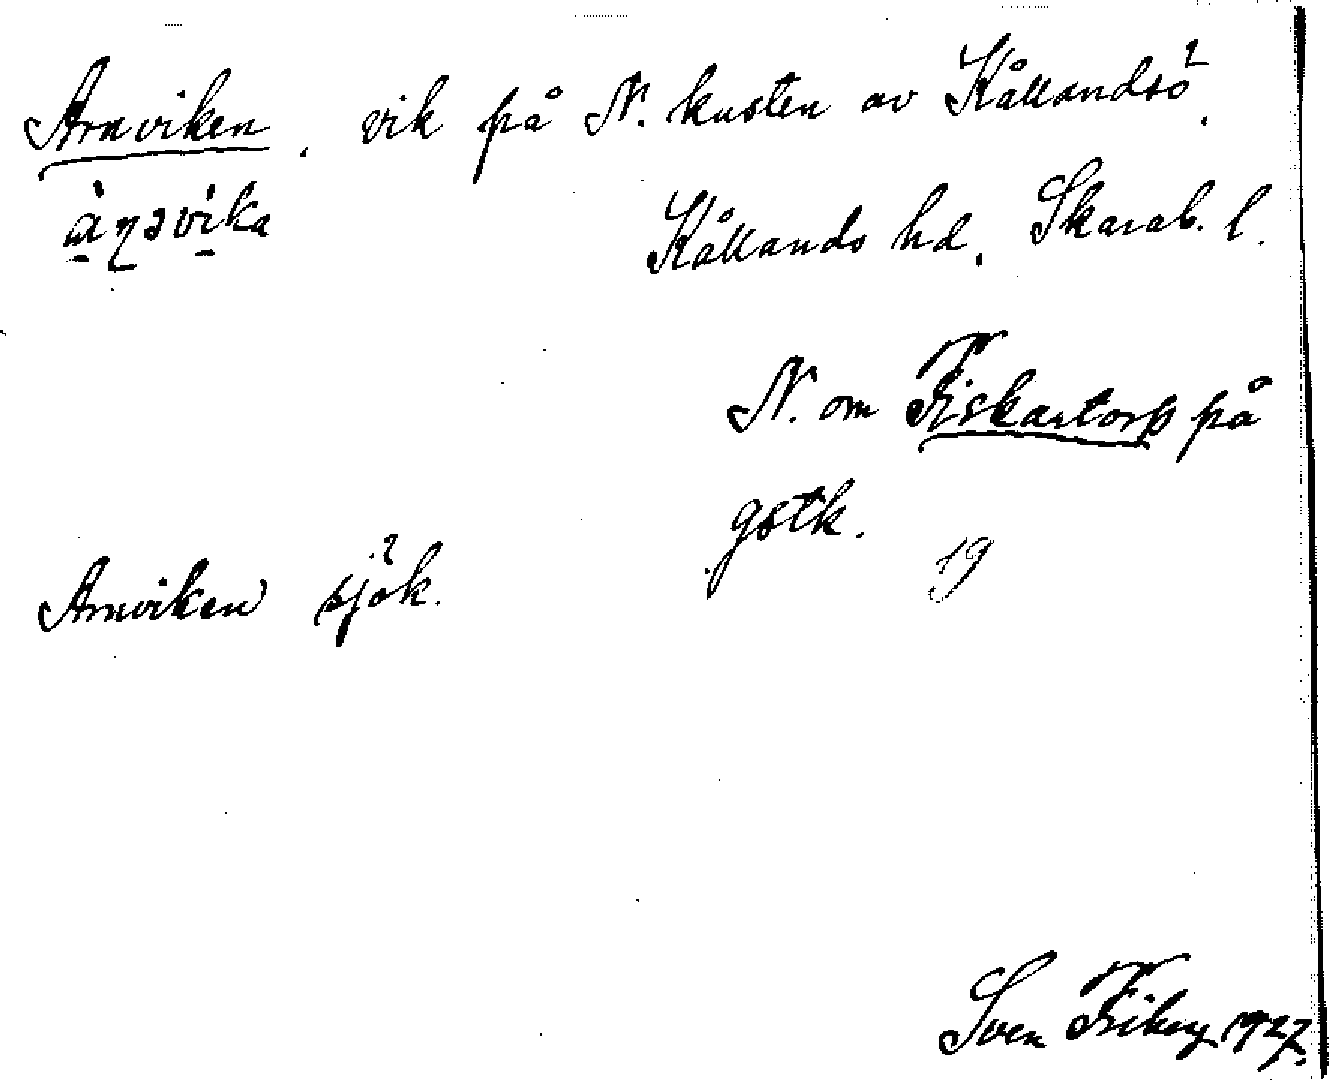 Arnviken, vik på N. kusten av Kållandsö.
Kållands hd, Skarab. l.
N. om Fiskartorp på
gstk. 19
Arnviken sjök.
Sven Friberg 1927.